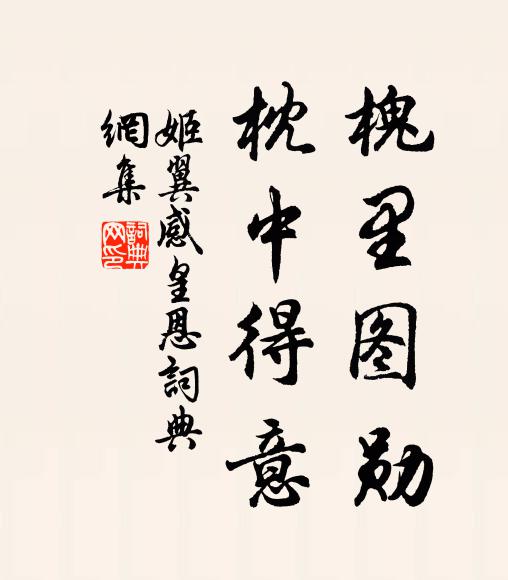 槐里图勋
枕中得意
姬翼感皇恩詞典
網集
詞典
网印